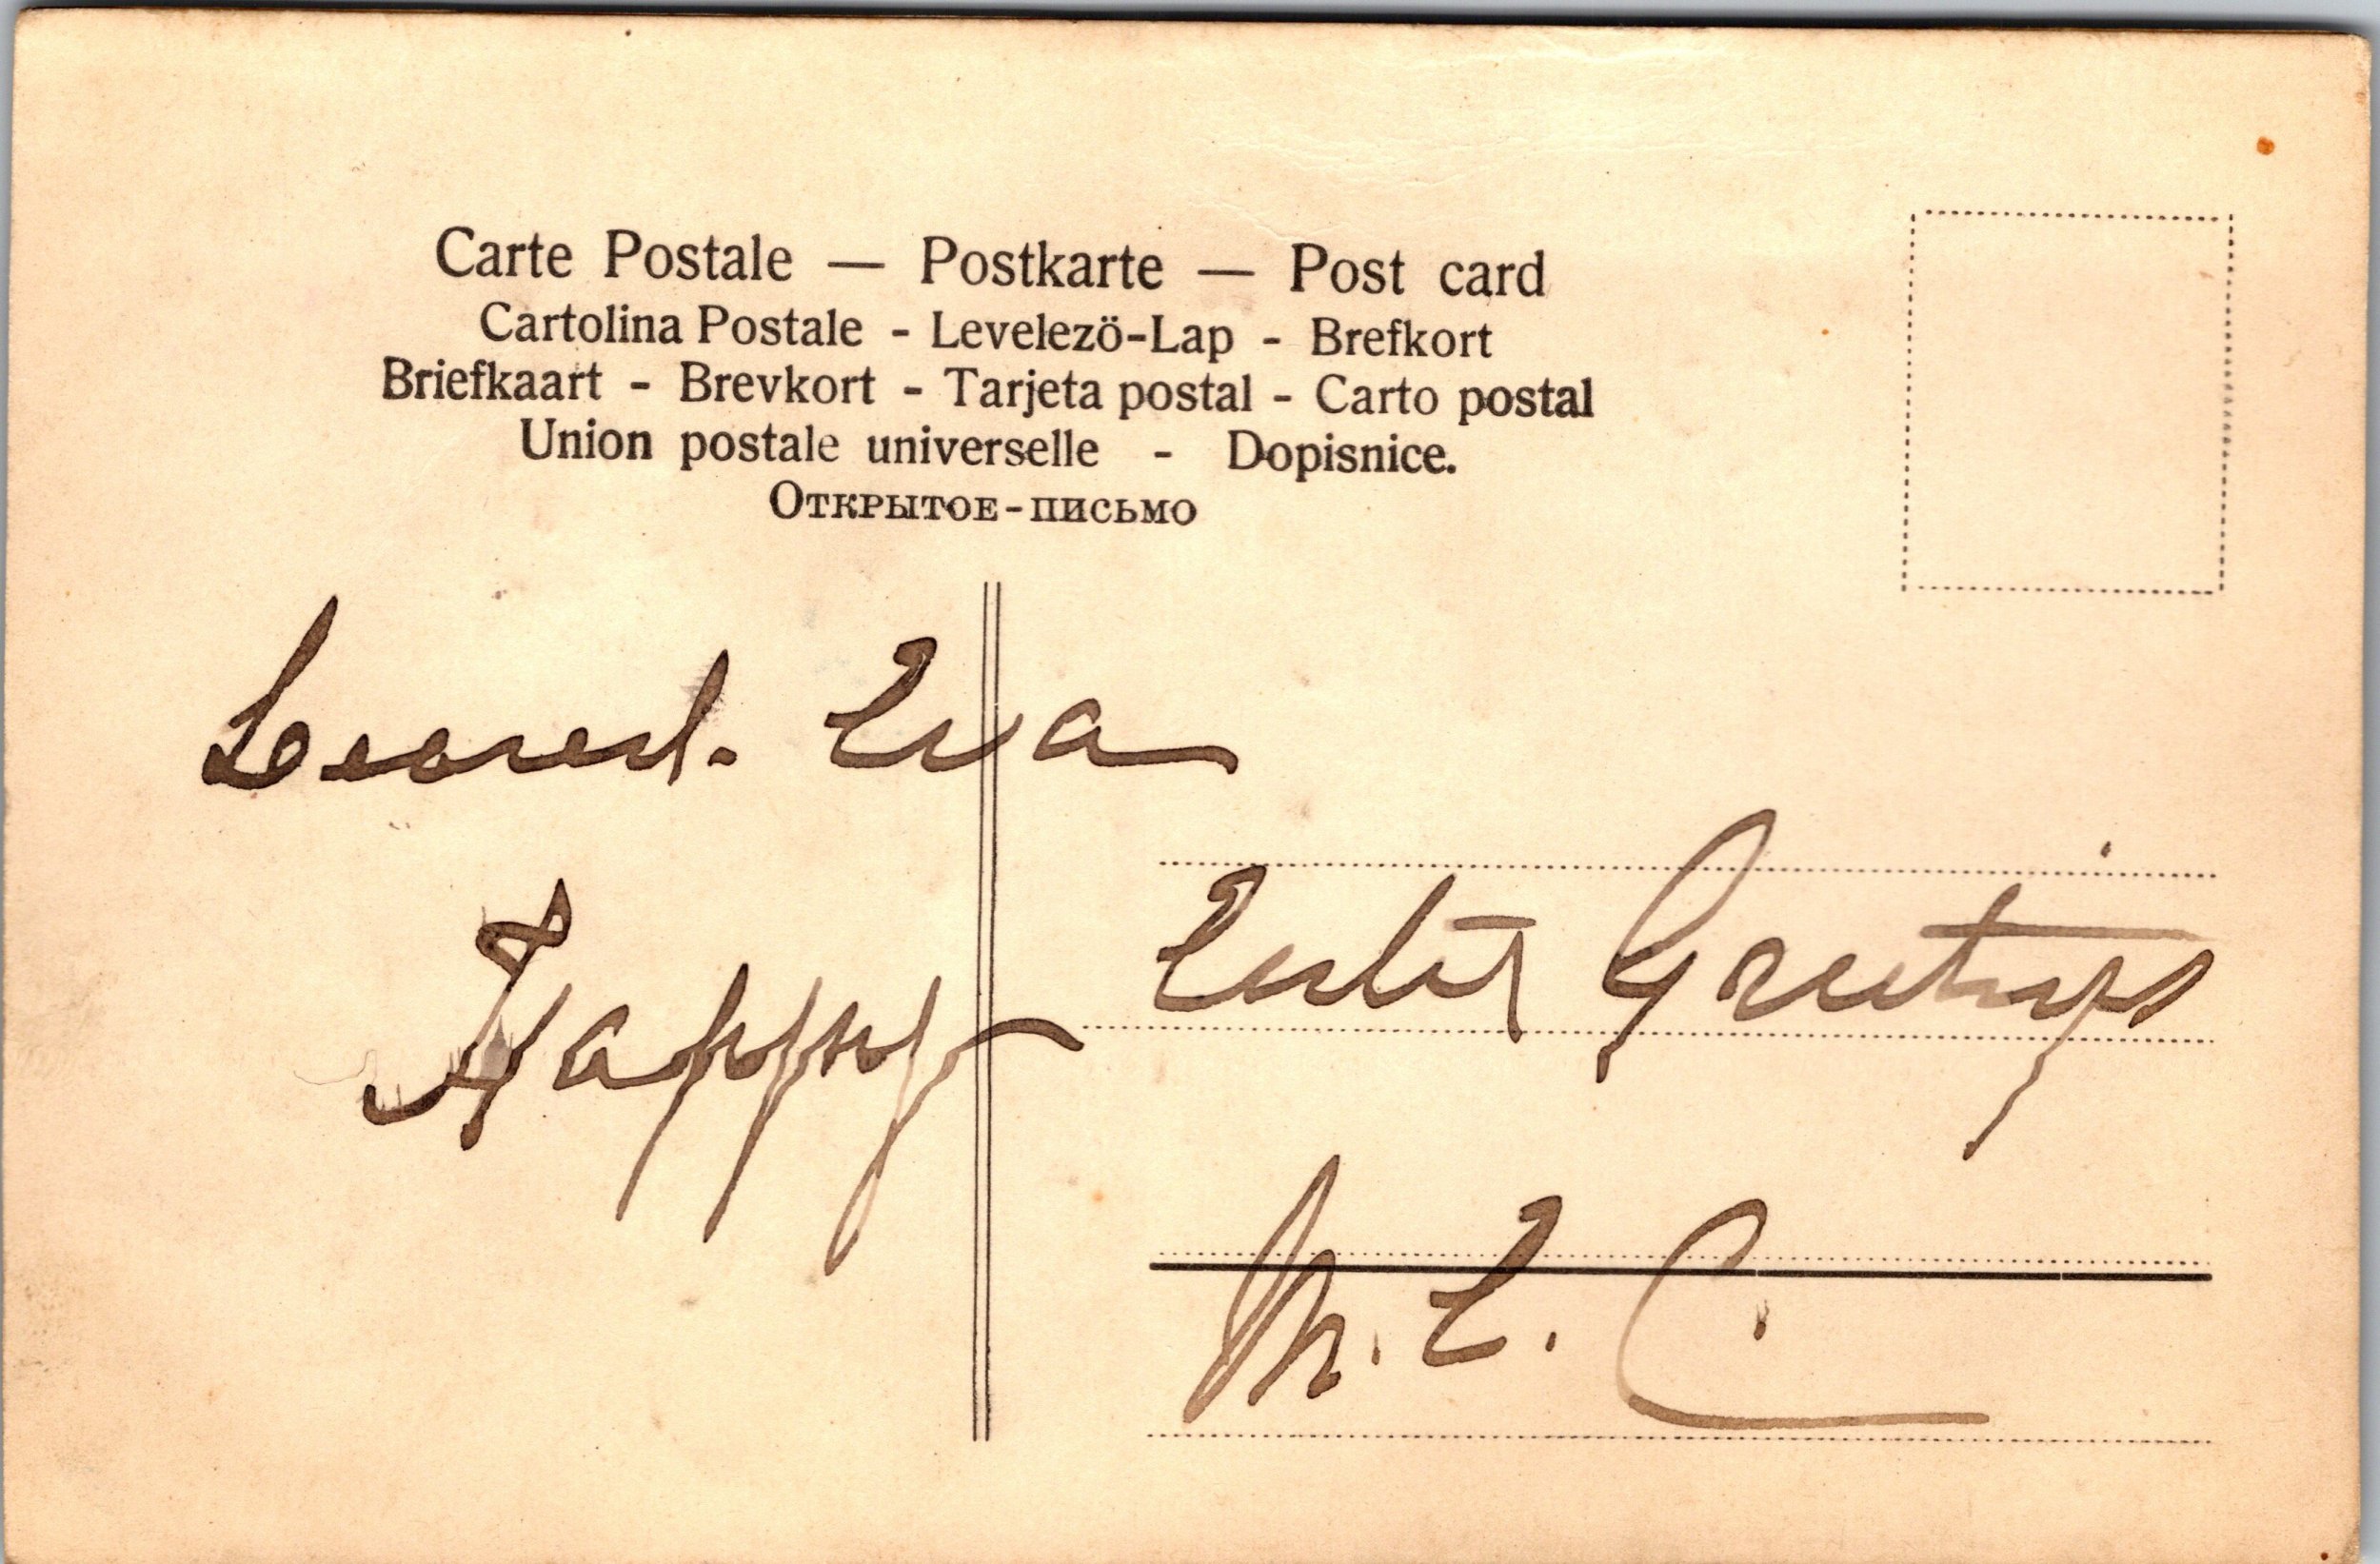 Carte Postale — Postkarte — Post card
Cartolina Postale - Levelezö-Lap - Brefkort
Briefkaart - Brevkort - Tarjeta postal - Carto postal
Union postale universelle - Dopisnice.
Открытое-письмо
Eva
Happy Easter Greetings
M. E. C.